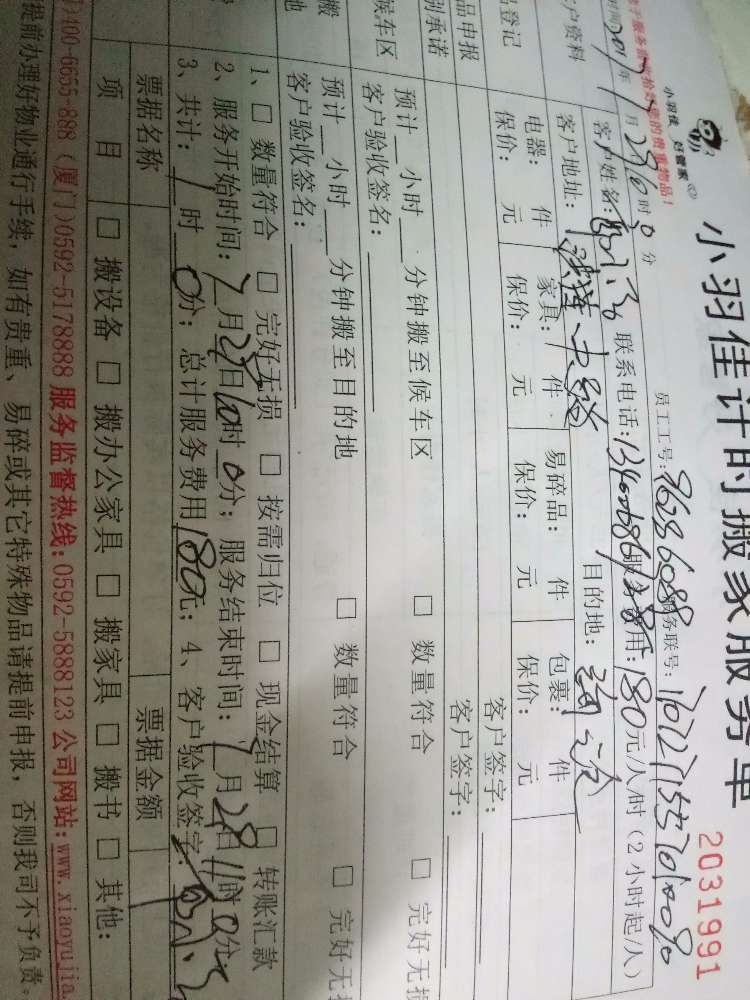 您的贵重物品!
小羽佳 好管家
小羽佳计时搬家服务单
2031991
员工工号:
服务联号:
年 月 时 0 分
客户资料
客户姓名:
联系电话:
用:180元/人/时(2小时起/人)
客户地址:
目的地:
登记
电器: 件 家具: 件 易碎品: 件 包裹: 件
保价: 元 保价: 元 保价: 元 保价: 元
品申报
客户签字:
别承诺
客户签字:
候车区
预计 小时 分钟搬至候车区 □ 数量符合 □ 完好无损
客户验收签名:
搬
地
预计 小时 分钟搬至目的地 □ 数量符合 □ 完好无损
客户验收签名:
1、□ 数量符合 □ 完好无损 □ 按需归位 □ 现金结算 □ 转账汇款
2、服务开始时间:7月28日10时0分;服务结束时间:7月28日11时0分;
3、共计:1时0分;总计服务费用180元;4、客户验收签字:
票据名称 票据金额
项目 □ 搬设备 □ 搬办公家具 □ 搬家具 □ 搬书 □ 其他:
400-6655-888(厦门)0592-5178888 服务监督热线:0592-5888123 公司网站:www.xiaoyujia.
提前办理好物业通行手续,如有贵重、易碎或其它特殊物品请提前申报,否则我司不予负责。